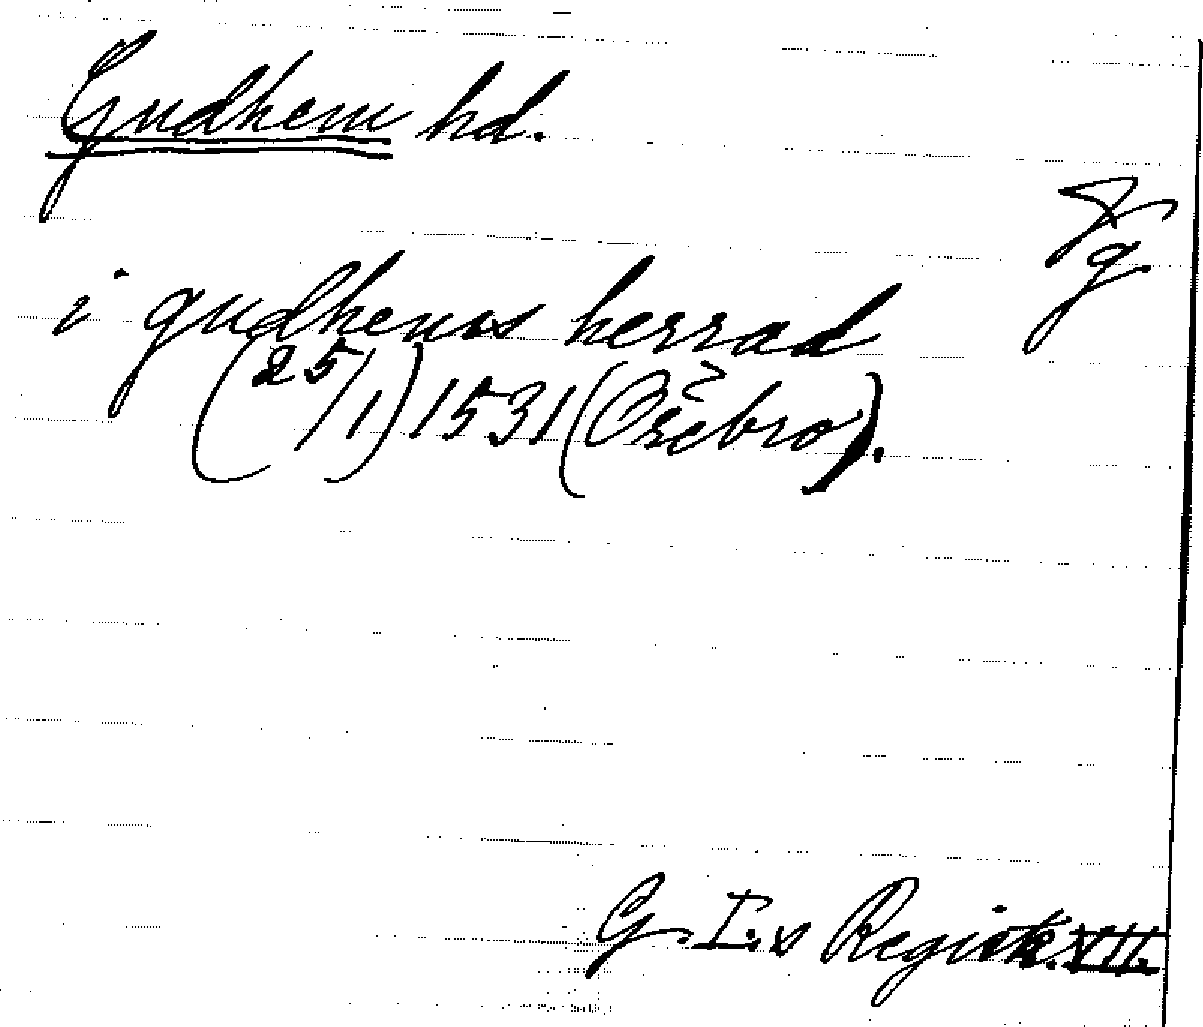 Gudhem hd.
Vg
i gudhems herrad
(25/1) 1531 (Örebro).
G. I.s Registr. VII.